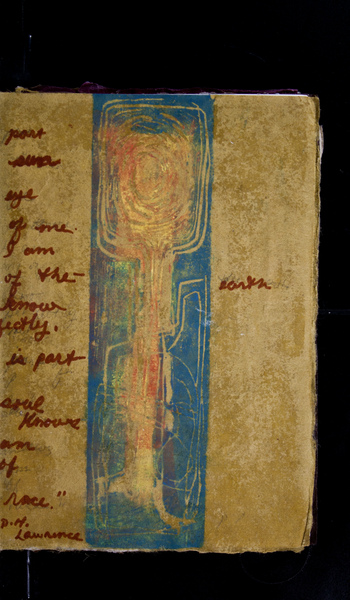 part
sun
eye
of me.
I am
of the
know
ectly.
is part
soul
knows
am
of
race."
D.H.
Lawrence
earth